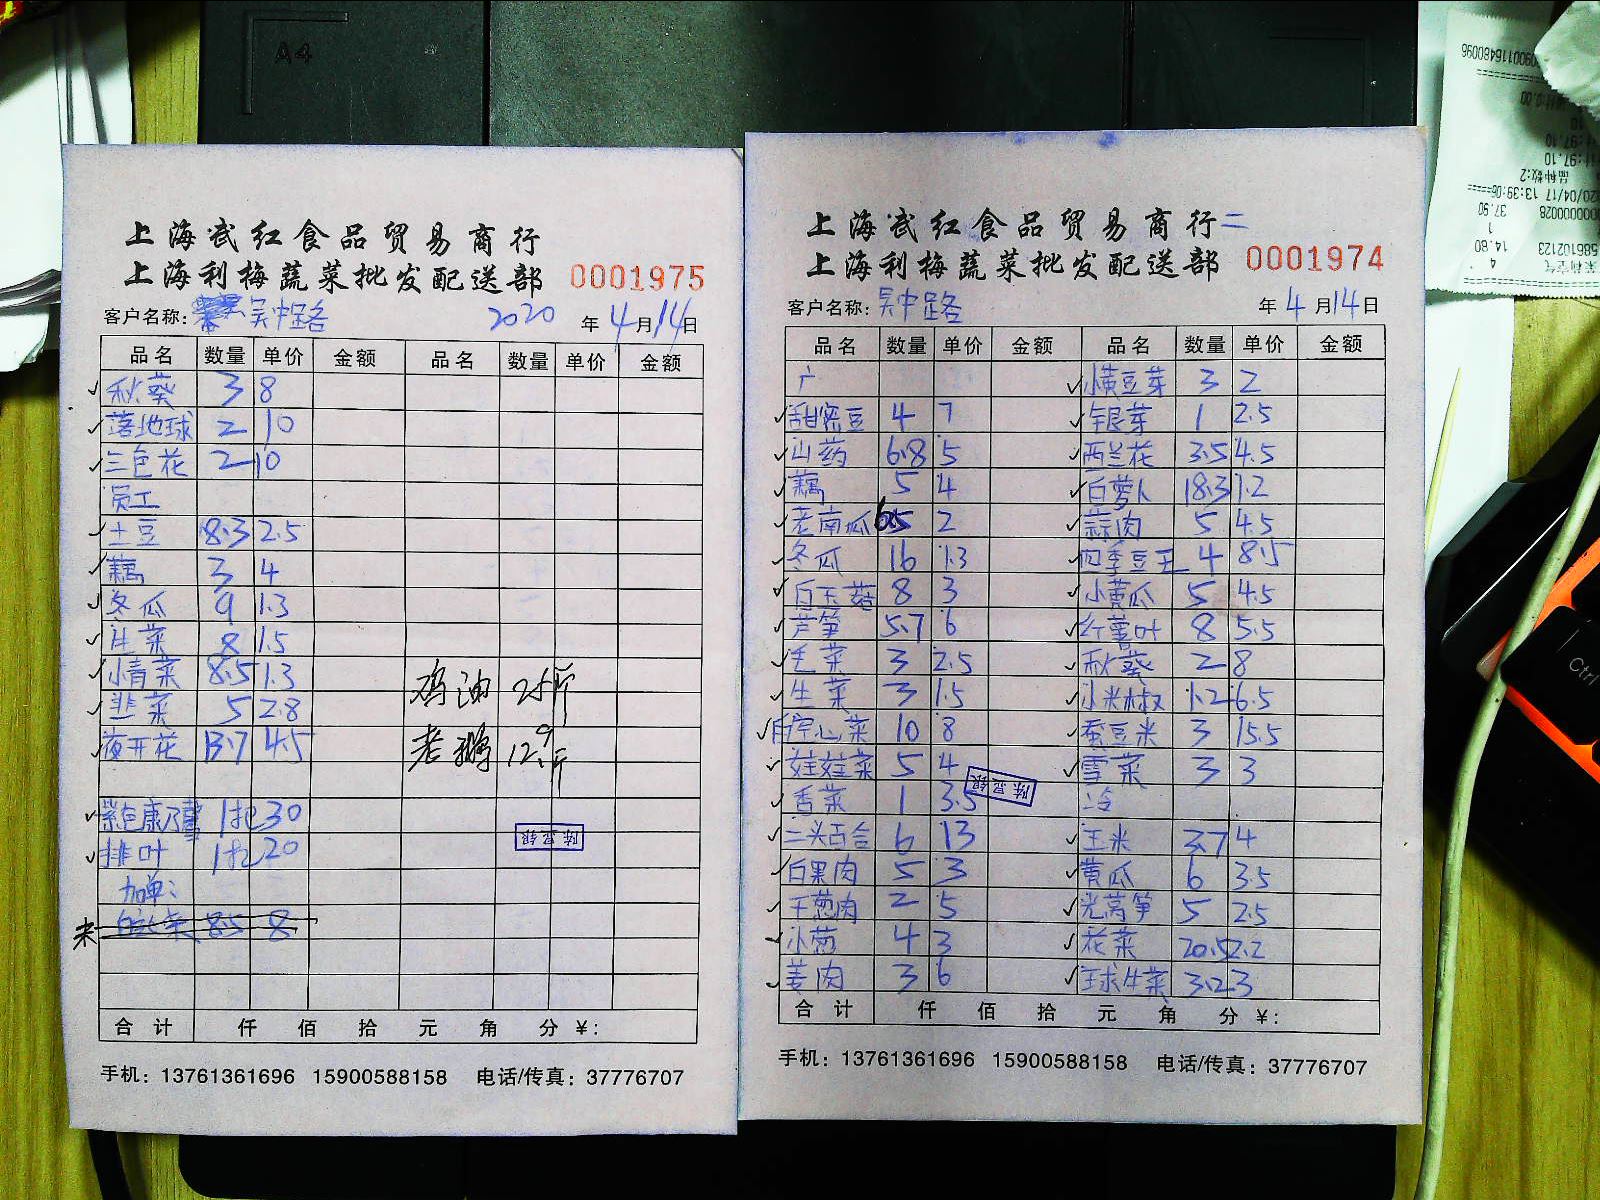 A4
上海斌红食品贸易商行
上海利梅蔬菜批发配送部 0001975
客户名称: 吴中路 2020 年 4 月 14 日
品名 数量 单价 金额 品名 数量 单价 金额
秋葵 3 8
落地球 2 10
三色花 2 10
员工
土豆 8.3 2.5
藕 3 4
冬瓜 9 1.3
生菜 8 1.5
小青菜 8.5 1.3 鸡油 25斤
韭菜 5 2.8
夜开花 13.7 4.5 老鹅 12.9斤
紫色康乃馨 1把 30
排叶 1把 20
加单:
未 8.5 8
合计 仟 佰 拾 元 角 分 ¥:
手机: 13761361696 15900588158 电话/传真: 37776707
陈显银
上海斌红食品贸易商行 二
上海利梅蔬菜批发配送部 0001974
客户名称: 吴中路 年 4 月 14 日
品名 数量 单价 金额 品名 数量 单价 金额
小黄豆芽 3 2
甜密豆 4 7 银芽 1 2.5
山药 6.8 5 西兰花 3.5 4.5
藕 5 4 白萝卜 18.3 1.2
老南瓜 6.5 2 蒜肉 5 4.5
冬瓜 16 1.3 四季豆王 4 8.5
白玉菇 8 3 小黄瓜 5 4.5
芦笋 5.7 6 红薯叶 8 5.5
毛菜 3 2.5 秋葵 2 8
生菜 3 1.5 小米椒 1.2 6.5
白空心菜 10 8 蚕豆米 3 15.5
娃娃菜 5 4 雪菜 3 3
香菜 1 3.5 冷
二头百合 6 13 玉米 3.7 4
白果肉 5 3 黄瓜 6 3.5
干葱肉 2 5 光莴笋 5 2.5
小葱 4 3 花菜 20.5 2.2
姜肉 3 6 球生菜 3.2 3
陈显银
合计 仟 佰 拾 元 角 分 ¥:
手机: 13761361696 15900588158 电话/传真: 37776707
Ctrl